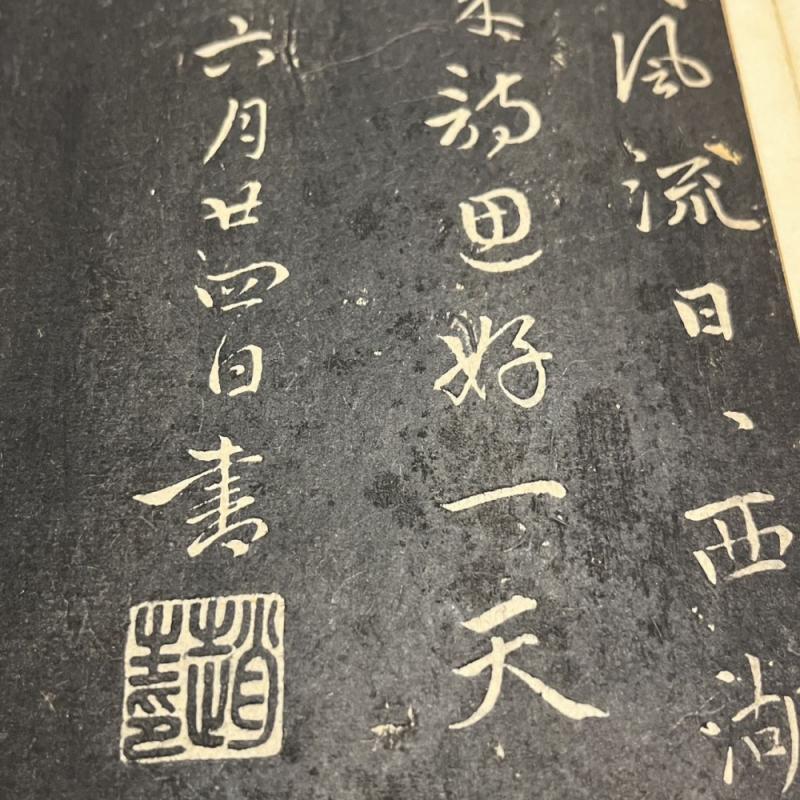 風流日、西湖
詩思好一天
六月廿四日書
趙
印